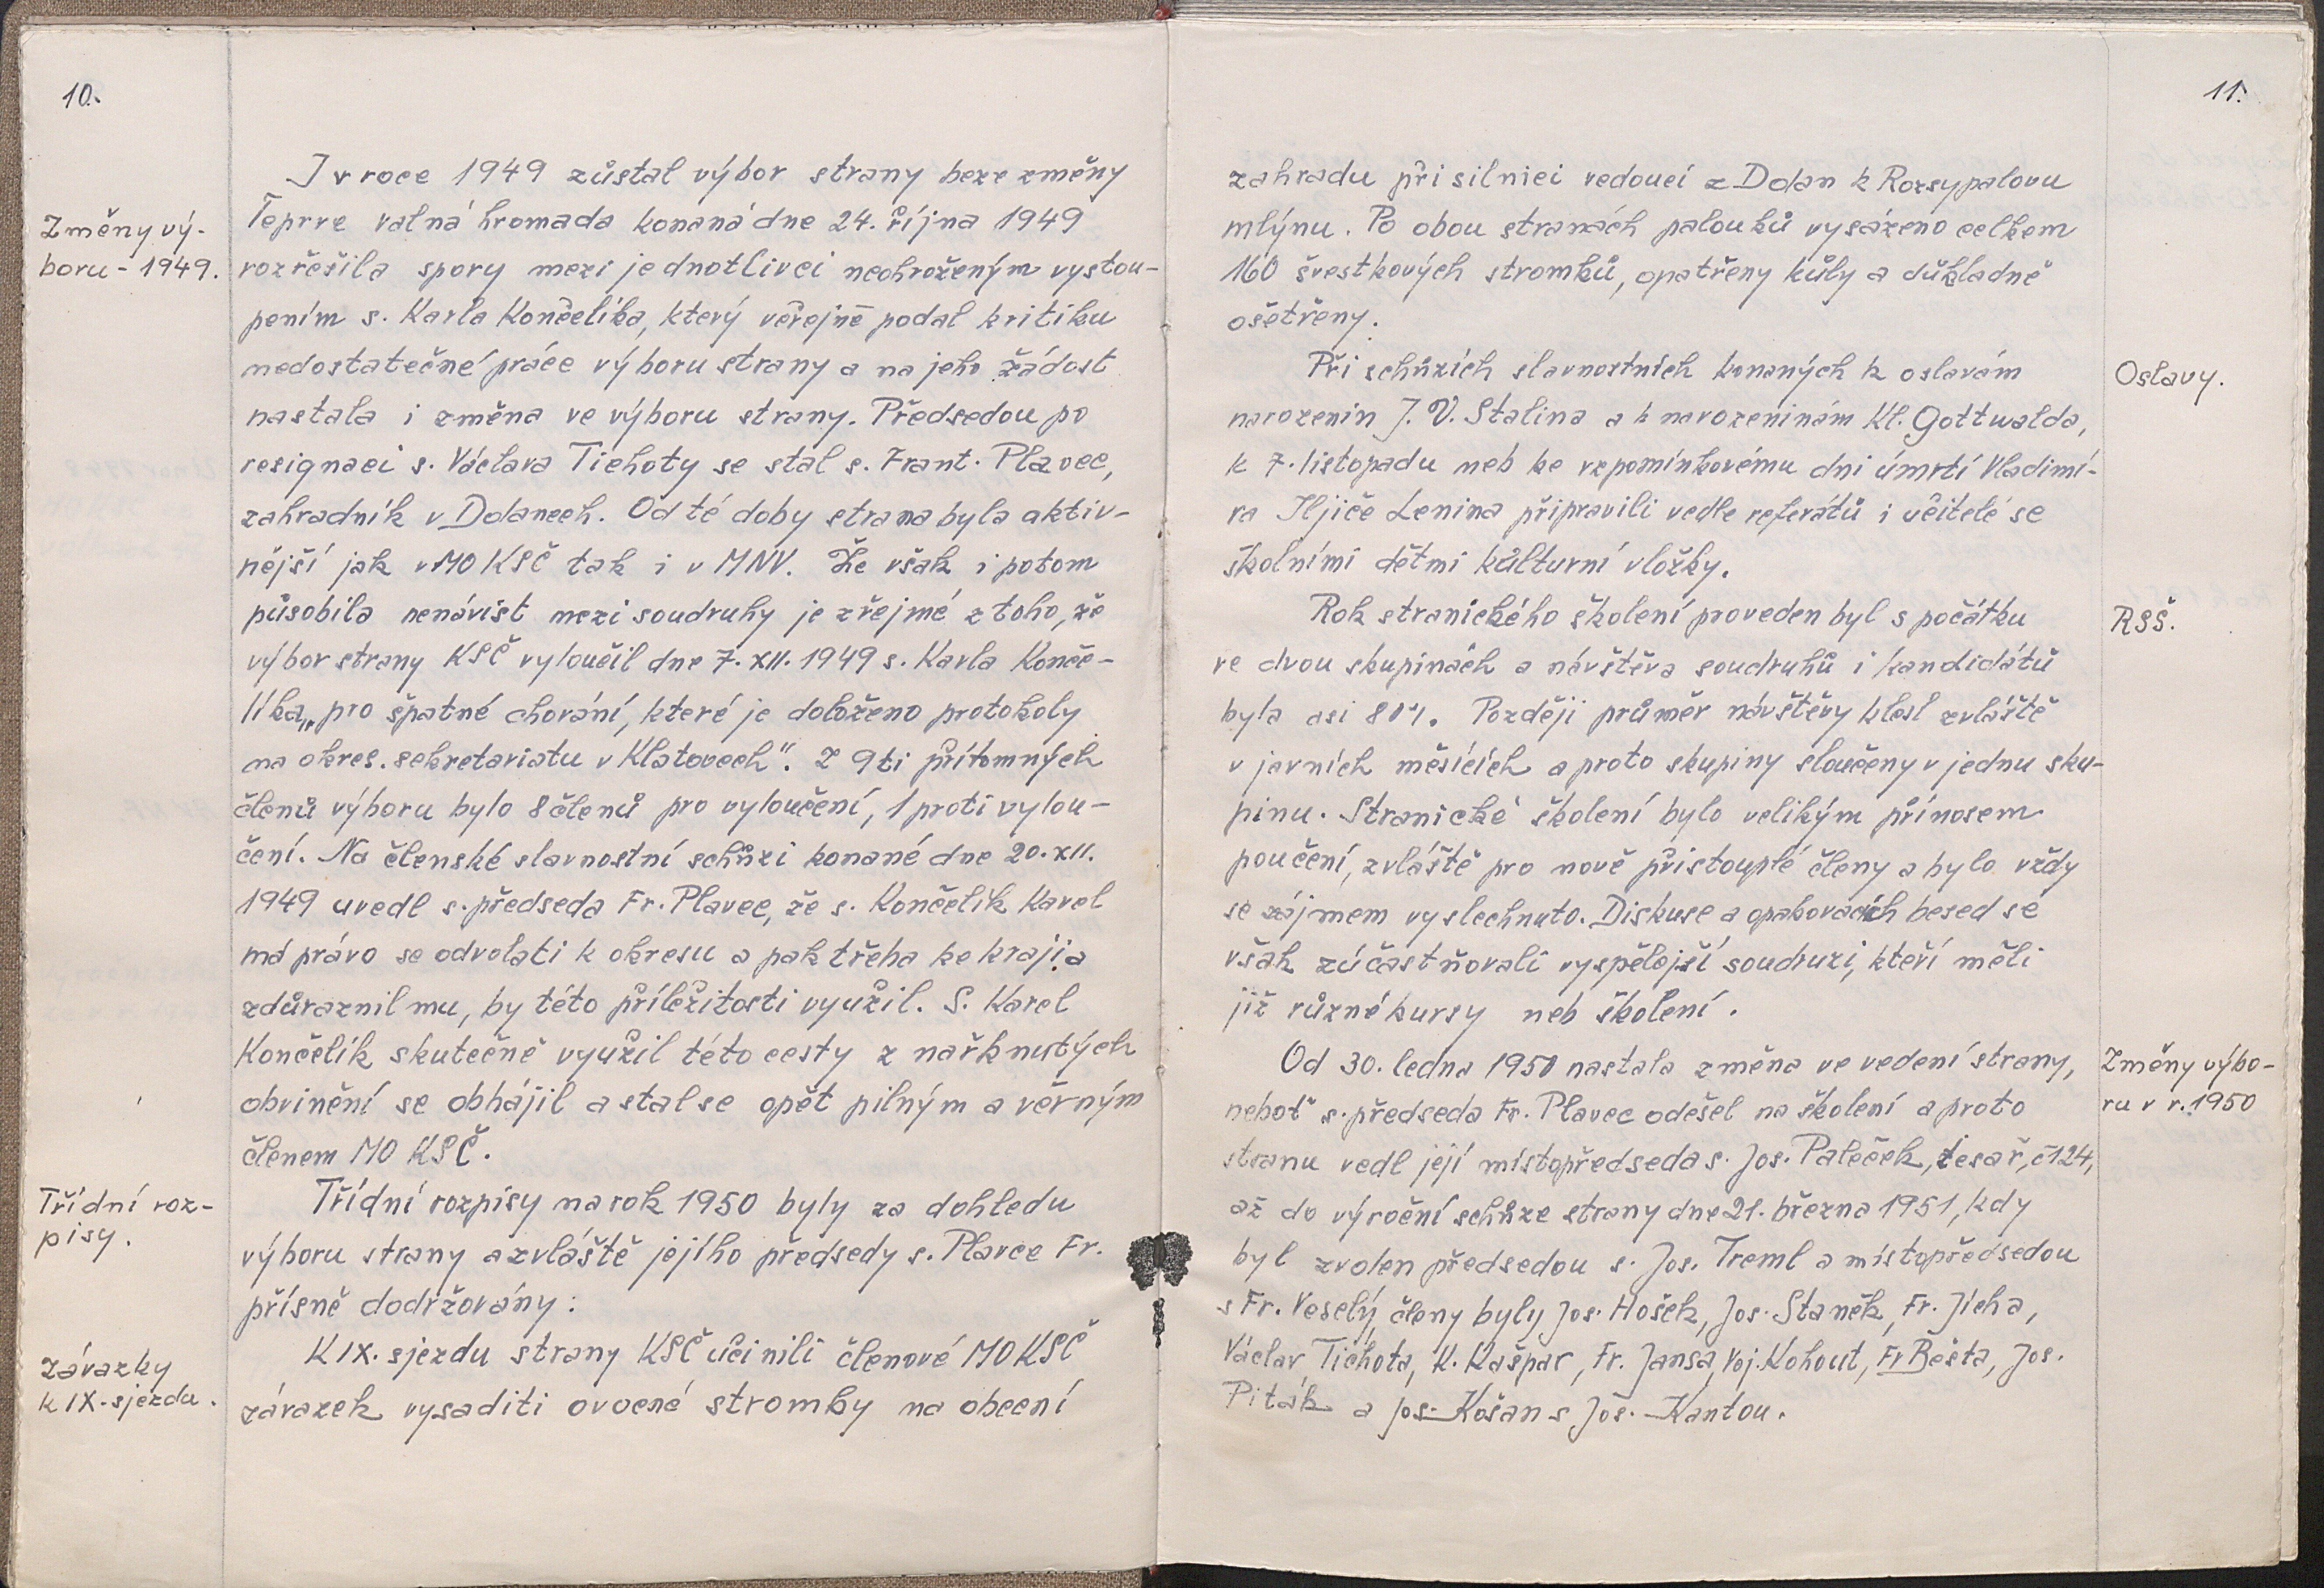 10.
Změny vý-
boru - 1949.
I v roce 1949 zůstal výbor strany beze změny
Teprve valná hromada konaná dne 24. října 1949
rozřešila spory mezi jednotlivci neohroženým vystou-
pením s. Karla Končelíka, který veřejně podal kritiku
nedostatečné práce výboru strany a na jeho žádost
nastala i změna ve výboru strany. Předsedou po
resignaci s. Václava Tichoty se stal s. Frant. Plavec,
zahradník v Dolanech. Od té doby strana byla aktiv-
nější jak v MO KSČ tak i v MNV. Že však i potom
působila nenávist mezi soudruhy je zřejmé z toho, že
výbor strany KSČ vyloučil dne 7. XII. 1949 s. Karla Konče-
líka „pro špatné chování, které je doloženo protokoly
na okres. sekretariatu v Klatovech". Z 9ti přítomných
členů výboru bylo 8 členů pro vyloučení, 1 proti vylou-
čení. Na členské slavnostní schůzi konané dne 20. XII.
1949 uvedl s. předseda Fr. Plavec, že s. Končelík Karel
má právo se odvolati k okresu a pak třeba ke kraji a
zdůraznil mu, by této příležitosti využil. S. Karel
Končelík skutečně využil této cesty z nařknutých
obvinění se obhájil a stal se opět pilným a věrným
členem MO KSČ.
Třídní roz-
pisy.
Třídní rozpisy na rok 1950 byly za dohledu
výboru strany a zvláště jejího předsedy s. Plavce Fr.
přísně dodržovány:
závazky
k IX. sjezdu.
K IX. sjezdu strany KSČ učinili členové MO KSČ
závazek vysaditi ovocné stromky na obecní
11.
zahradu při silnici vedoucí z Dolan k Rozsypalovu
mlýnu. Po obou stranách palouků vysázeno celkem
160 švestkových stromků, opatřeny kůly a důkladně
ošetřeny.
Oslavy.
Při schůzích slavnostních konaných k oslavám
narozenin J. V. Stalina a k narozeninám Kl. Gottwalda,
k 7. listopadu neb ke vzpomínkovému dni úmrtí Vladimí-
ra Iljiče Lenina připravili vedle referátů i učitelé se
školními dětmi kůlturní vložky.
RSŠ.
Rok stranického školení proveden byl s počátku
ve dvou skupinách a návštěva soudruhů i kandidátů
byla asi 80%. Později průměr návštěvy klesl zvláště
v jarních měsících a proto skupiny sloučeny v jednu sku-
pinu. Stranické školení bylo velikým přínosem
poučení, zvláště pro nově přistouplé členy a bylo vždy
se zájmem vyslechnuto. Diskuse a opakovacích besed se
však zúčastňovali vyspělejší soudruzi, kteří měli
již různé kursy neb školení.
Změny výbo-
ru v r. 1950
Od 30. ledna 1950 nastala změna ve vedení strany,
neboť s. předseda Fr. Plavec odešel na školení a proto
stranu vedl její místopředseda s. Jos. Paleček, tesař, č 124,
až do výroční schůze strany dne 21. března 1951, kdy
byl zvolen předsedou s. Jos. Treml a místopředsedou
s Fr. Veselý, členy byly Jos. Hošek, Jos. Staněk, Fr. Jícha,
Václav Tichota, K. Kašpar, Fr. Jansa, Voj. Kohout, Fr Bešta, Jos.
Piták a Jos. Košan s Jos. Kantou.